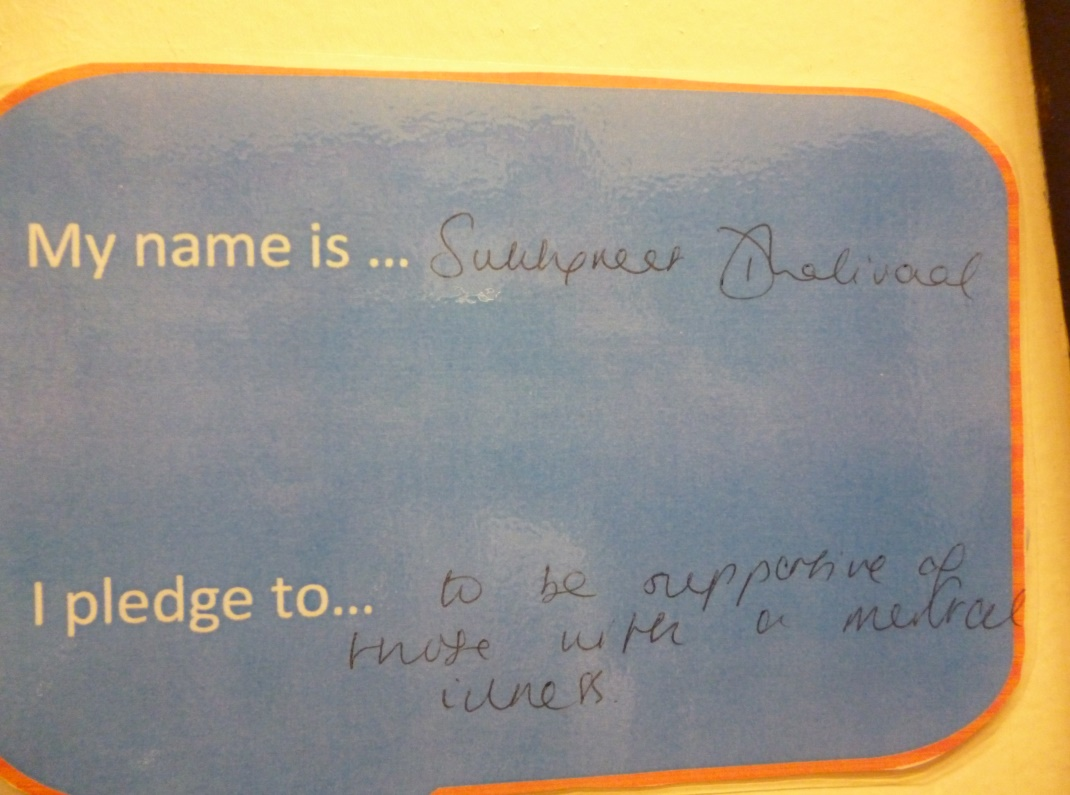 My name is ... Sukhpreet Dhalivaal
I pledge to... to be supportive of
those with a mental
illness.